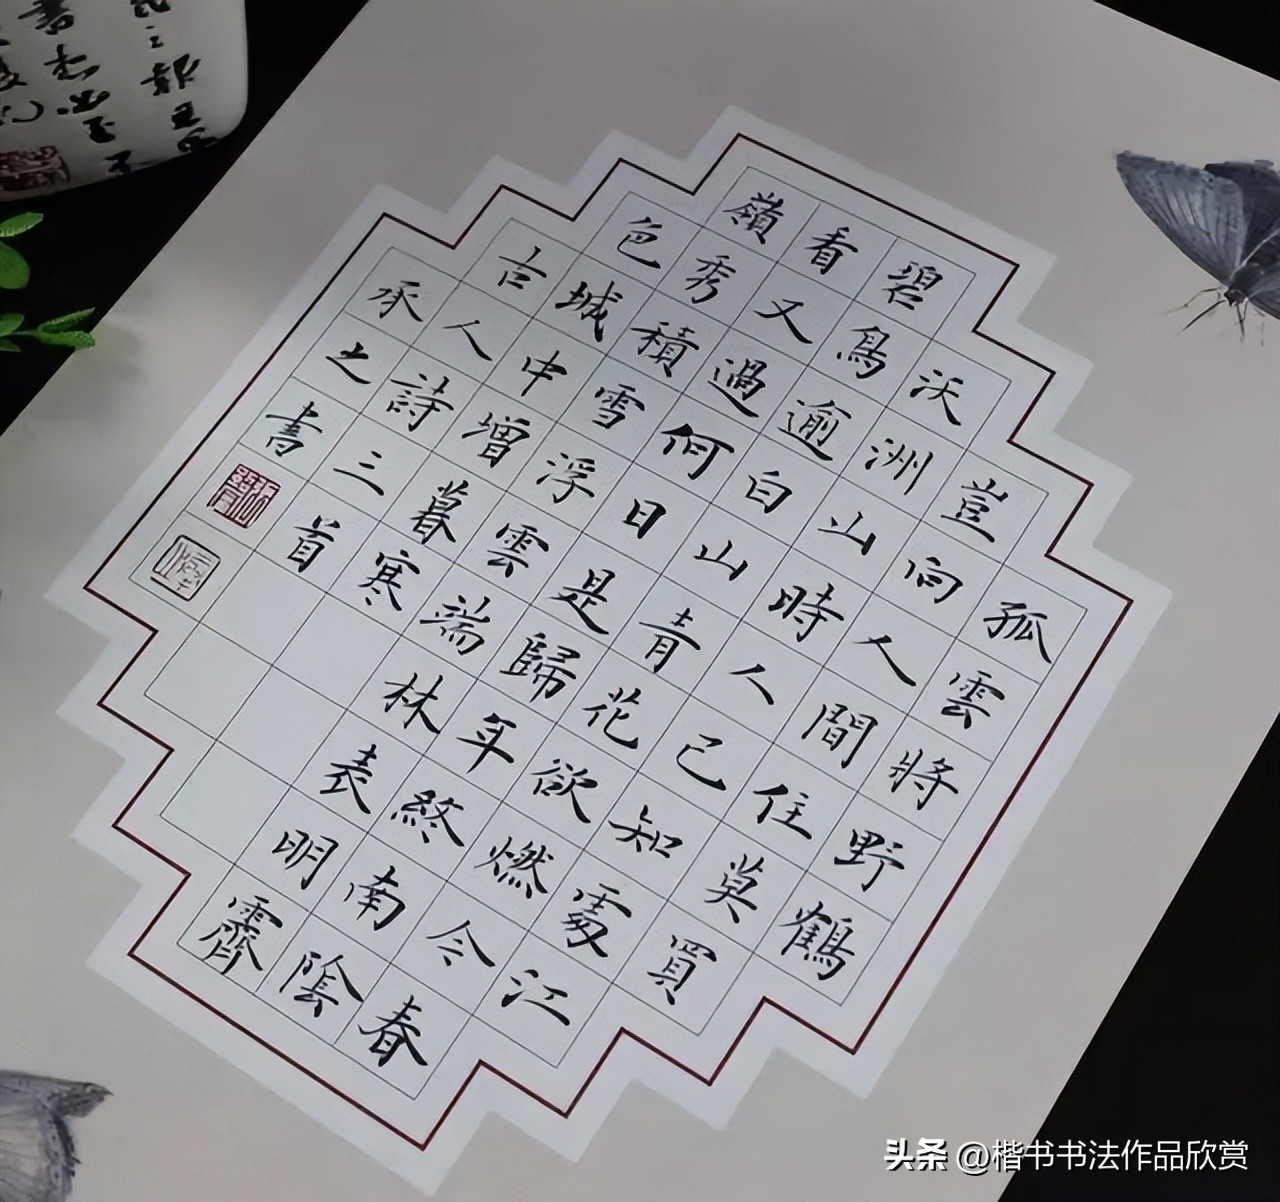 孤雲將野鶴
豈向人間住莫買
沃洲山時人已知處江
碧鳥逾白山青花欲燃今春
看又過何日是歸年終南陰
嶺秀積雪浮雲端林表明霽
色城中增暮寒
古人詩三首
承之書
头条 @楷书书法作品欣赏